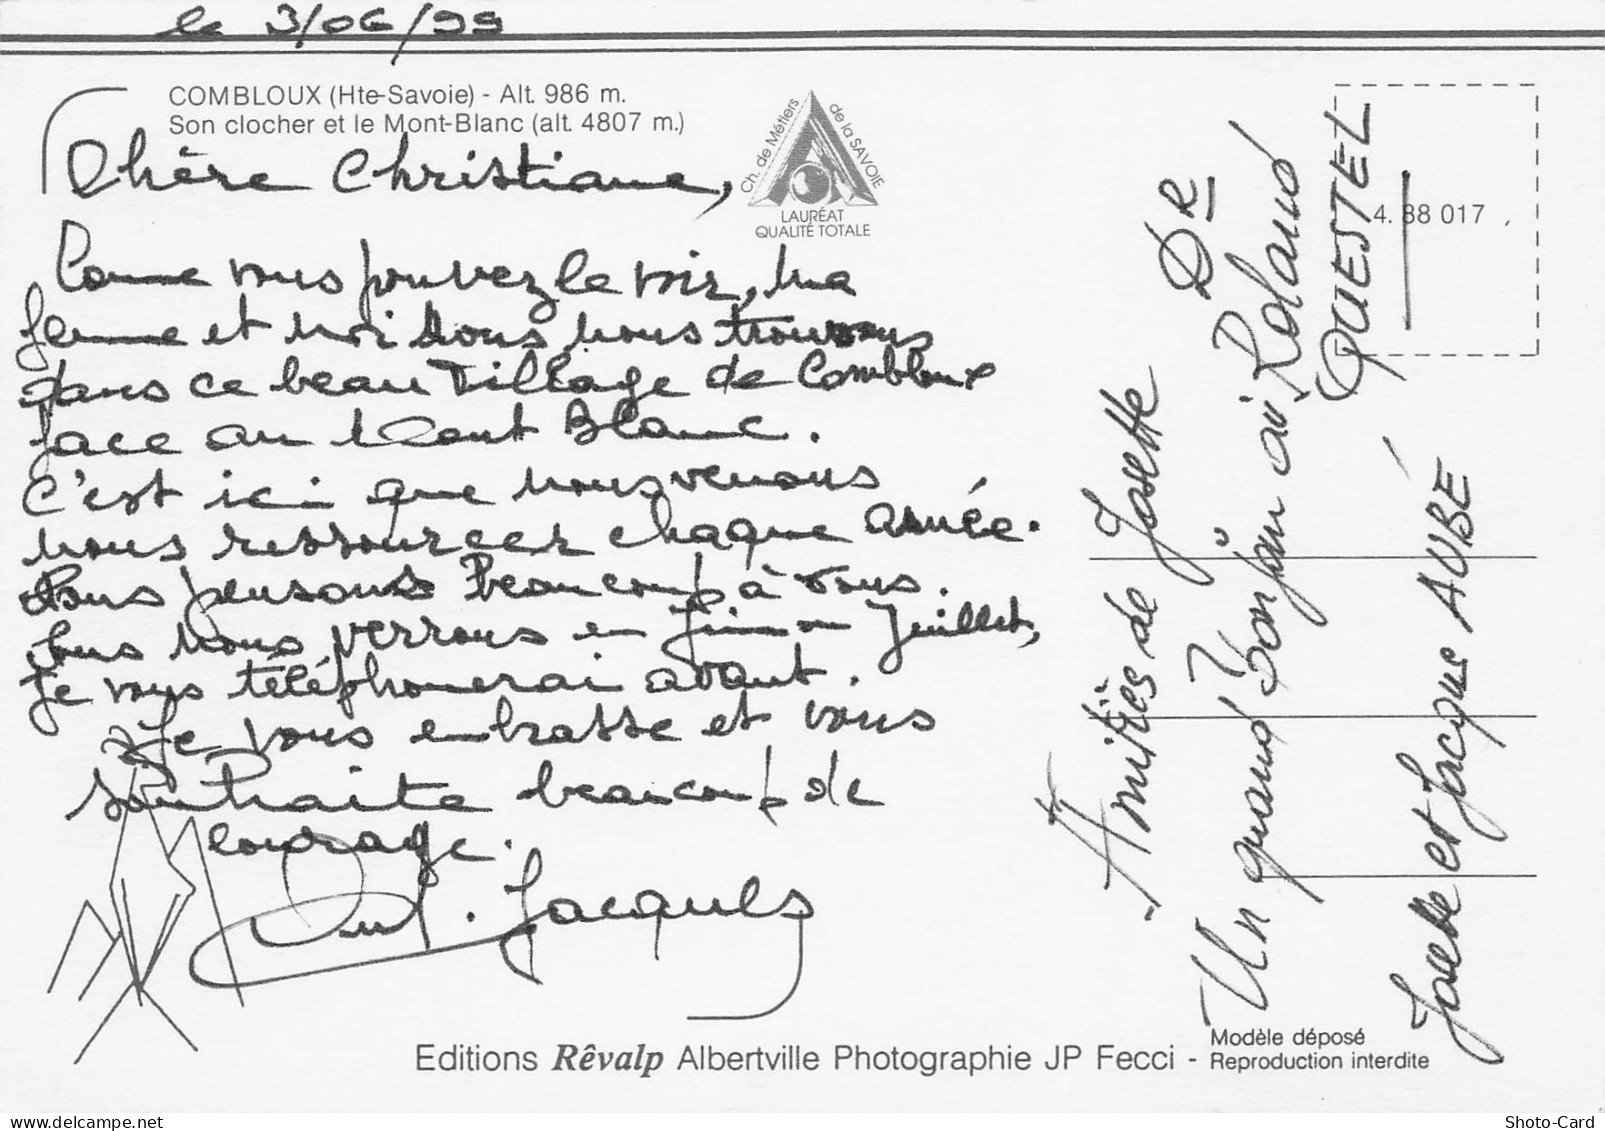 le 3/06/99
COMBLOUX (Hte-Savoie) - Alt. 986 m.
Son clocher et le Mont-Blanc (alt. 4807 m.)
Ch. de Métiers de la SAVOIE
LAURÉAT
QUALITÉ TOTALE
4. 88 017
Chère Christiane,
Comme vous pouvez le voir, ma
femme et moi nous nous trouvons
dans ce beau village de Combloux
face au Mont Blanc.
C'est ici que nous venons
nous ressourcer chaque année.
Nous pensons beaucoup à vous.
Nous nous verrons en Juin ou Juillet,
je vous téléphonerai avant.
Je vous embrasse et vous
souhaite beaucoup de
courage.
Jacques
Amitiés de Josette
Un grand bonjour au Roland
DR
QUESTEL
Josette et Jacques AUBÉ
Editions Rêvalp Albertville Photographie JP Fecci - Modèle déposé
Reproduction interdite
Shoto-Card